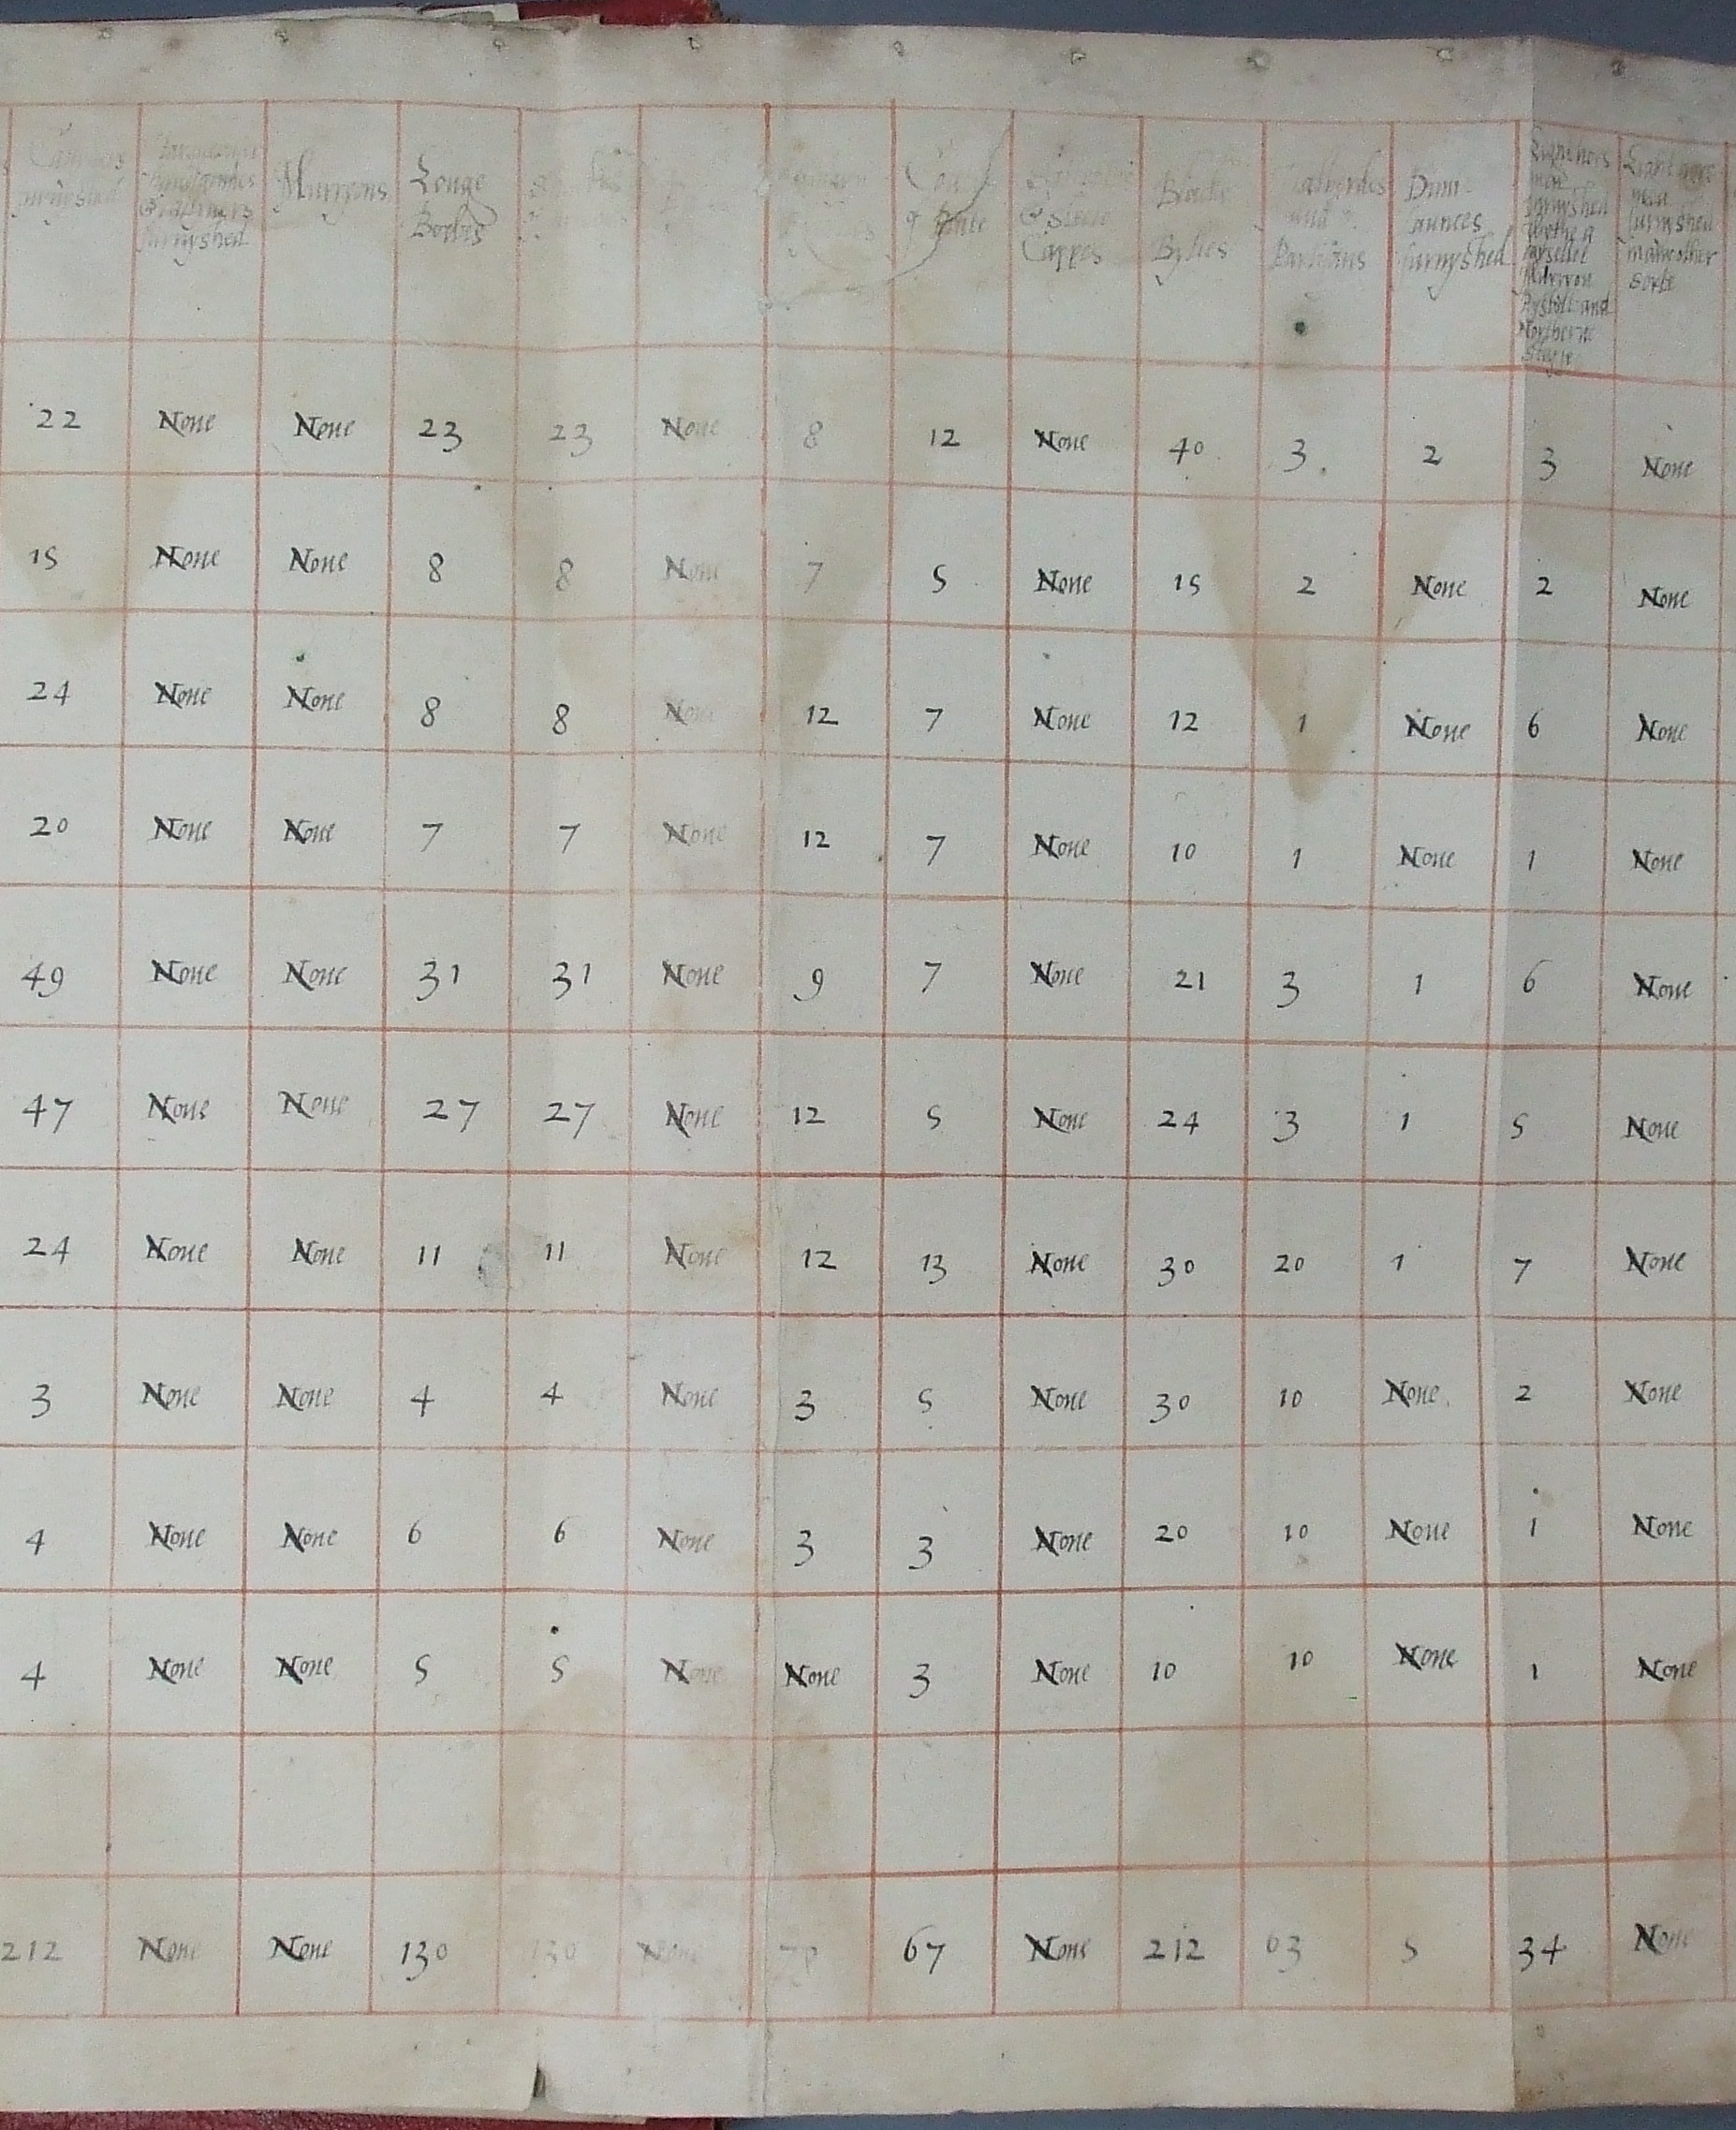 furnyshed
furnyshed
Murryons
Longe
Bowes
Cappes
Blacke
Bylles
and
Partisans
Dimi
launces
furnyshed
men
furnyshed
Pystoll and
Northerne
men
furnyshed
sorte
22 None None 23 23 None 8 12 None 40 3 2 3 None
15 None None 8 8 None 7 5 None 15 2 None 2 None
24 None None 8 8 None 12 7 None 12 1 None 6 None
20 None None 7 7 None 12 7 None 10 1 None 1 None
49 None None 31 31 None 9 7 None 21 3 1 6 None
47 None None 27 27 None 12 5 None 24 3 1 5 None
24 None None 11 11 None 12 13 None 30 20 1 7 None
3 None None 4 4 None 3 5 None 30 10 None 2 None
4 None None 6 6 None 3 3 None 20 10 None 1 None
4 None None 5 5 None None 3 None 10 10 None 1 None
212 None None 130 130 None 78 67 None 212 63 5 34 None